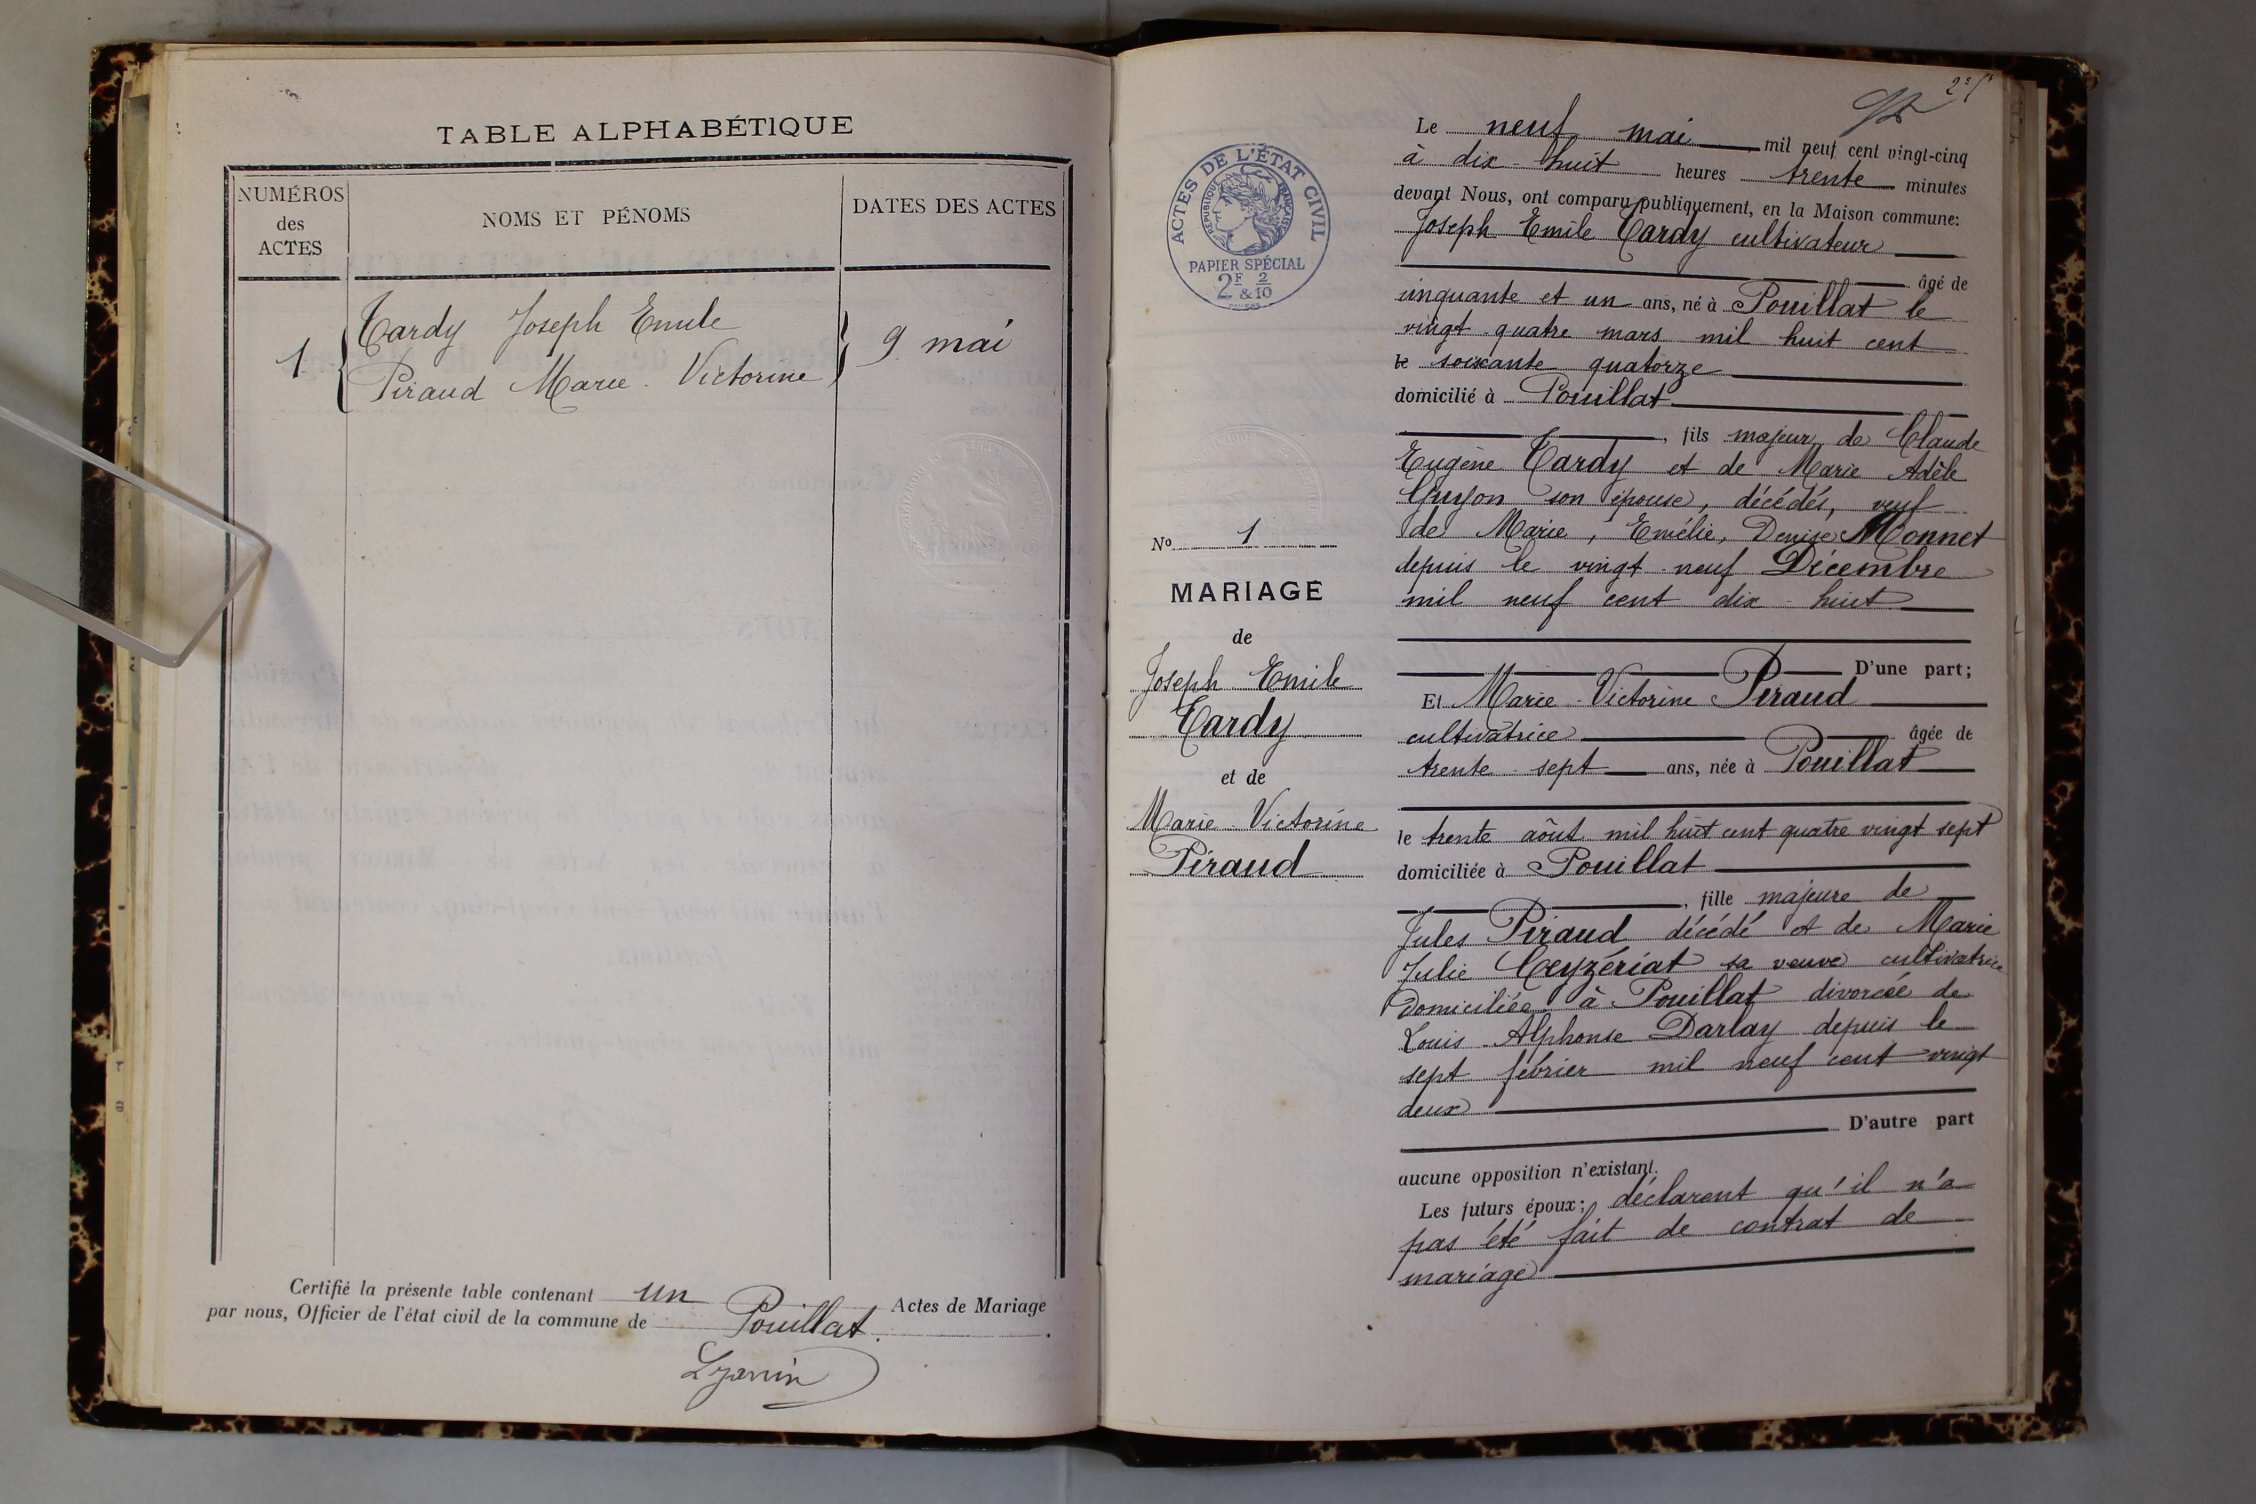 TABLE ALPHABÉTIQUE
NUMÉROS
des
ACTES
NOMS ET PÉNOMS
DATES DES ACTES
1
Tardy Joseph Emile
Piraud Marie-Victorine
9 mai
Certifié la présente table contenant un Actes de Mariage
par nous, Officier de l'état civil de la commune de Pouillat.
ACTES DE L'ÉTAT CIVIL
RÉPUBLIQUE FRANÇAISE
PAPIER SPÉCIAL
2F & 2/10
No 1
MARIAGE
de
Joseph Emile
Tardy
et de
Marie-Victorine
Piraud
Le neuf mai mil neuf cent vingt-cinq
à dix-huit heures trente minutes
devant Nous, ont comparu publiquement, en la Maison commune:
Joseph Emile Tardy cultivateur
âgé de
cinquante et un ans, né à Pouillat le
vingt-quatre mars mil huit cent
le soixante quatorze
domicilié à Pouillat
, fils majeur de Claude
Eugène Tardy et de Marie Adèle
Guyon son épouse, décédés, veuf
de Marie, Emélie, Denise Monnet
depuis le vingt-neuf Décembre
mil neuf cent dix-huit
D'une part;
Et Marie-Victorine Piraud
cultivatrice âgée de
trente-sept ans, née à Pouillat
le trente aôut mil huit cent quatre vingt sept
domiciliée à Pouillat
, fille majeure de
Jules Piraud décédé et de Marie
Julie Ceyzériat sa veuve cultivatrice
domiciliée à Pouillat divorcée de
Louis Alphonse Darlay depuis le
sept février mil neuf cent vingt
deux
D'autre part
aucune opposition n'existant.
Les futurs époux; déclarent qu'il n'a
pas été fait de contrat de
mariage